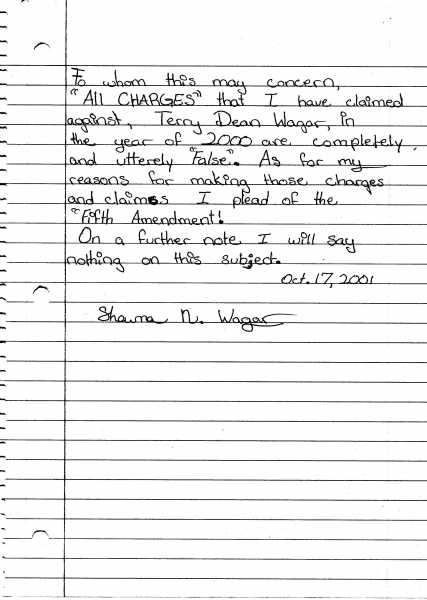 To whom this may concern,
"All CHARGES" that I have claimed
against, Terry Dean Wagar, in
the year of 2000 are completely,
and utterely "False". As for my
reasons for making those charges
and claimes I plead of the
"Fifth Amendment!
On a further note I will say
nothing on this subject.
Oct. 17, 2001
Shawna N. Wagar